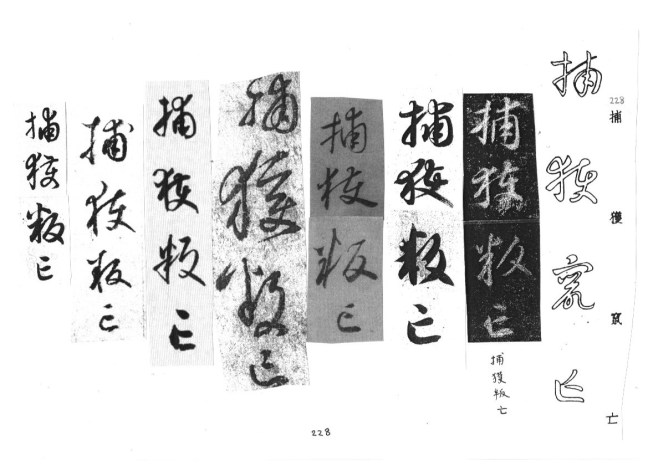 228
捕獲亡
捕獲亡
捕獲叛亡
捕獲叛亡
捕獲叛亡
捕獲叛亡
捕獲叛亡
捕獲叛亡
捕獲叛亡
捕獲叛亡
228